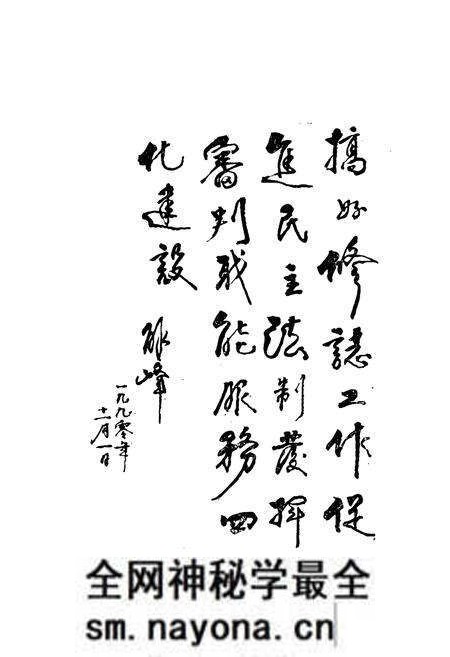 搞好修誌工作促
進民主法制發揮
審判职能服務四
化建設 峰
一九九零年
十一月一日
全网神秘学最全
sm.nayona.cn